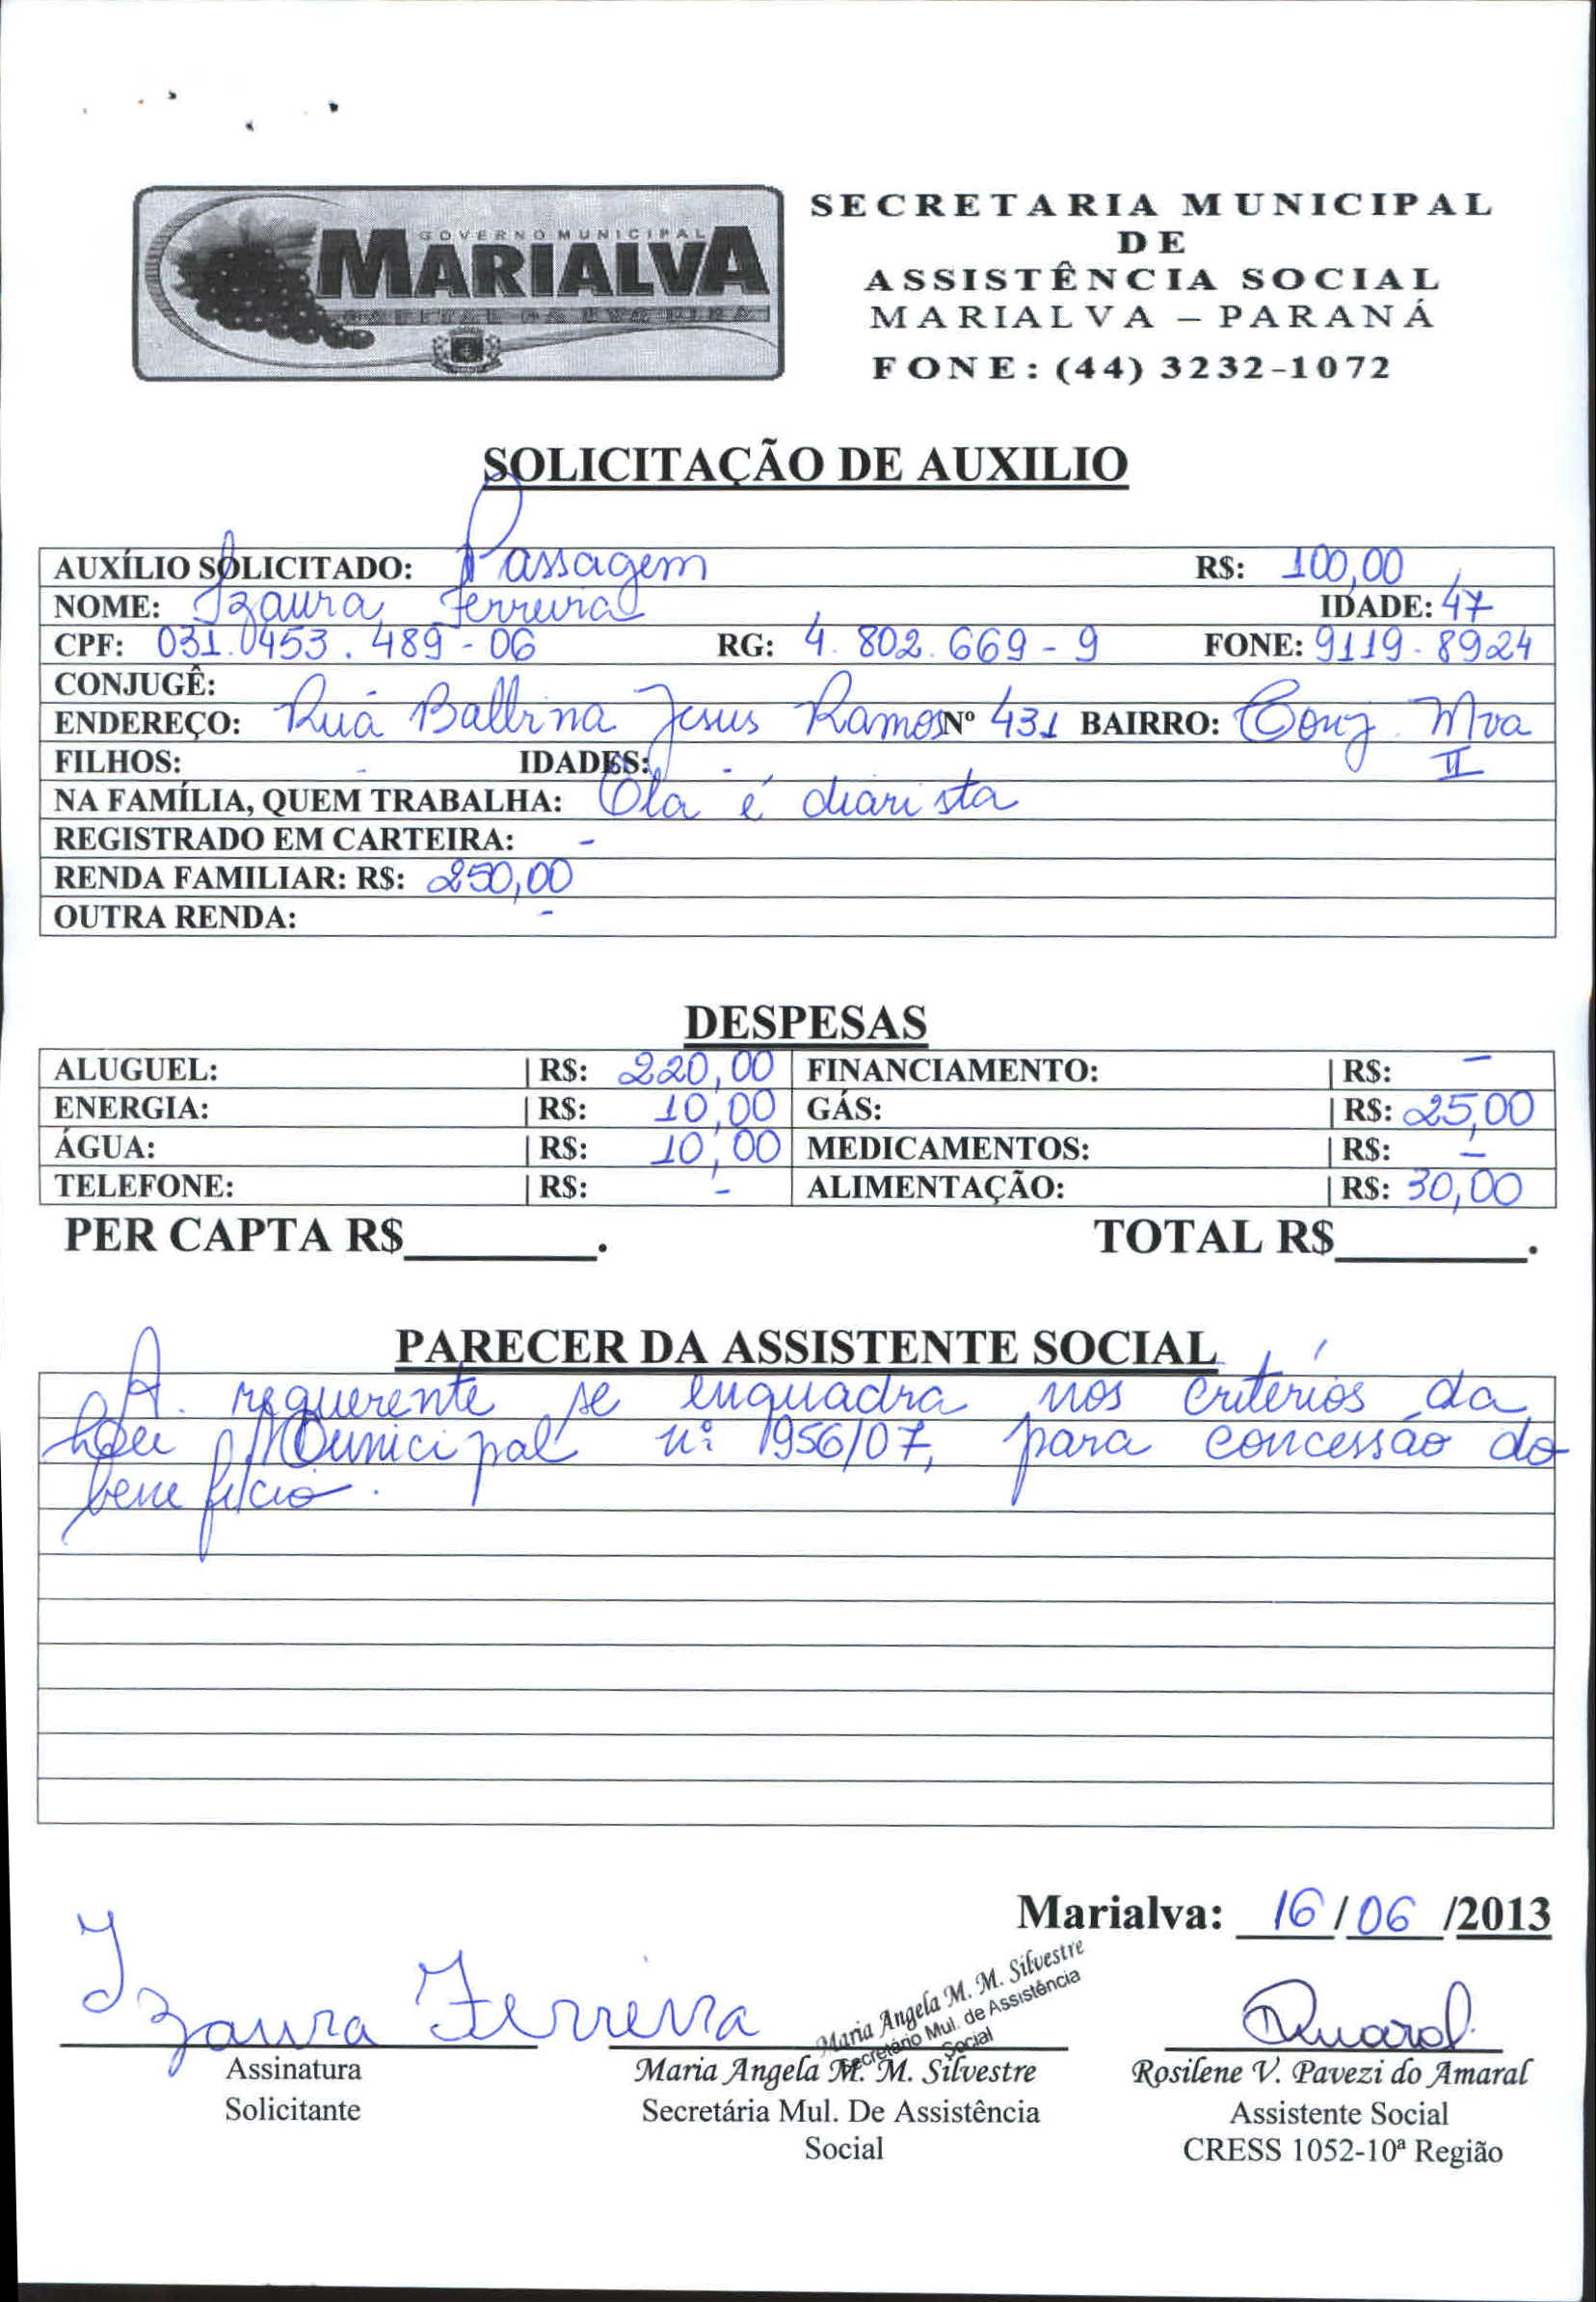 GOVERNO MUNICIPAL
MARIALVA
CAPITAL DA UVA FINA
SECRETARIA MUNICIPAL
DE
ASSISTÊNCIA SOCIAL
MARIALVA – PARANÁ
FONE: (44) 3232-1072
SOLICITAÇÃO DE AUXILIO
AUXÍLIO SOLICITADO: Passagem R$: 100,00
NOME: Izaura Ferreira IDADE: 47
CPF: 031.0453.489-06 RG: 4.802.669-9 FONE: 9119-8924
CONJUGÊ: -
ENDEREÇO: Rua Balbina Jesus Ramos Nº 431 BAIRRO: Conj. Mva II
FILHOS: - IDADES: -
NA FAMÍLIA, QUEM TRABALHA: Ela é diarista
REGISTRADO EM CARTEIRA: -
RENDA FAMILIAR: R$: 250,00
OUTRA RENDA: -
DESPESAS
ALUGUEL: | R$: 220,00 FINANCIAMENTO: | R$: -
ENERGIA: | R$: 10,00 GÁS: | R$: 25,00
ÁGUA: | R$: 10,00 MEDICAMENTOS: | R$: -
TELEFONE: | R$: - ALIMENTAÇÃO: | R$: 30,00
PER CAPTA R$________. TOTAL R$________.
PARECER DA ASSISTENTE SOCIAL
A requerente se enquadra nos critérios da
Lei Municipal nº 1956/07, para concessão do
benefício.
Marialva: 16/06/2013
Izaura Ferreira
Maria Angela M. M. Silvestre
Secretário Mul. de Assistência
Social
Assinatura
Solicitante
Maria Angela M. M. Silvestre
Secretária Mul. De Assistência
Social
Rosilene V. Pavezi do Amaral
Assistente Social
CRESS 1052-10ª Região